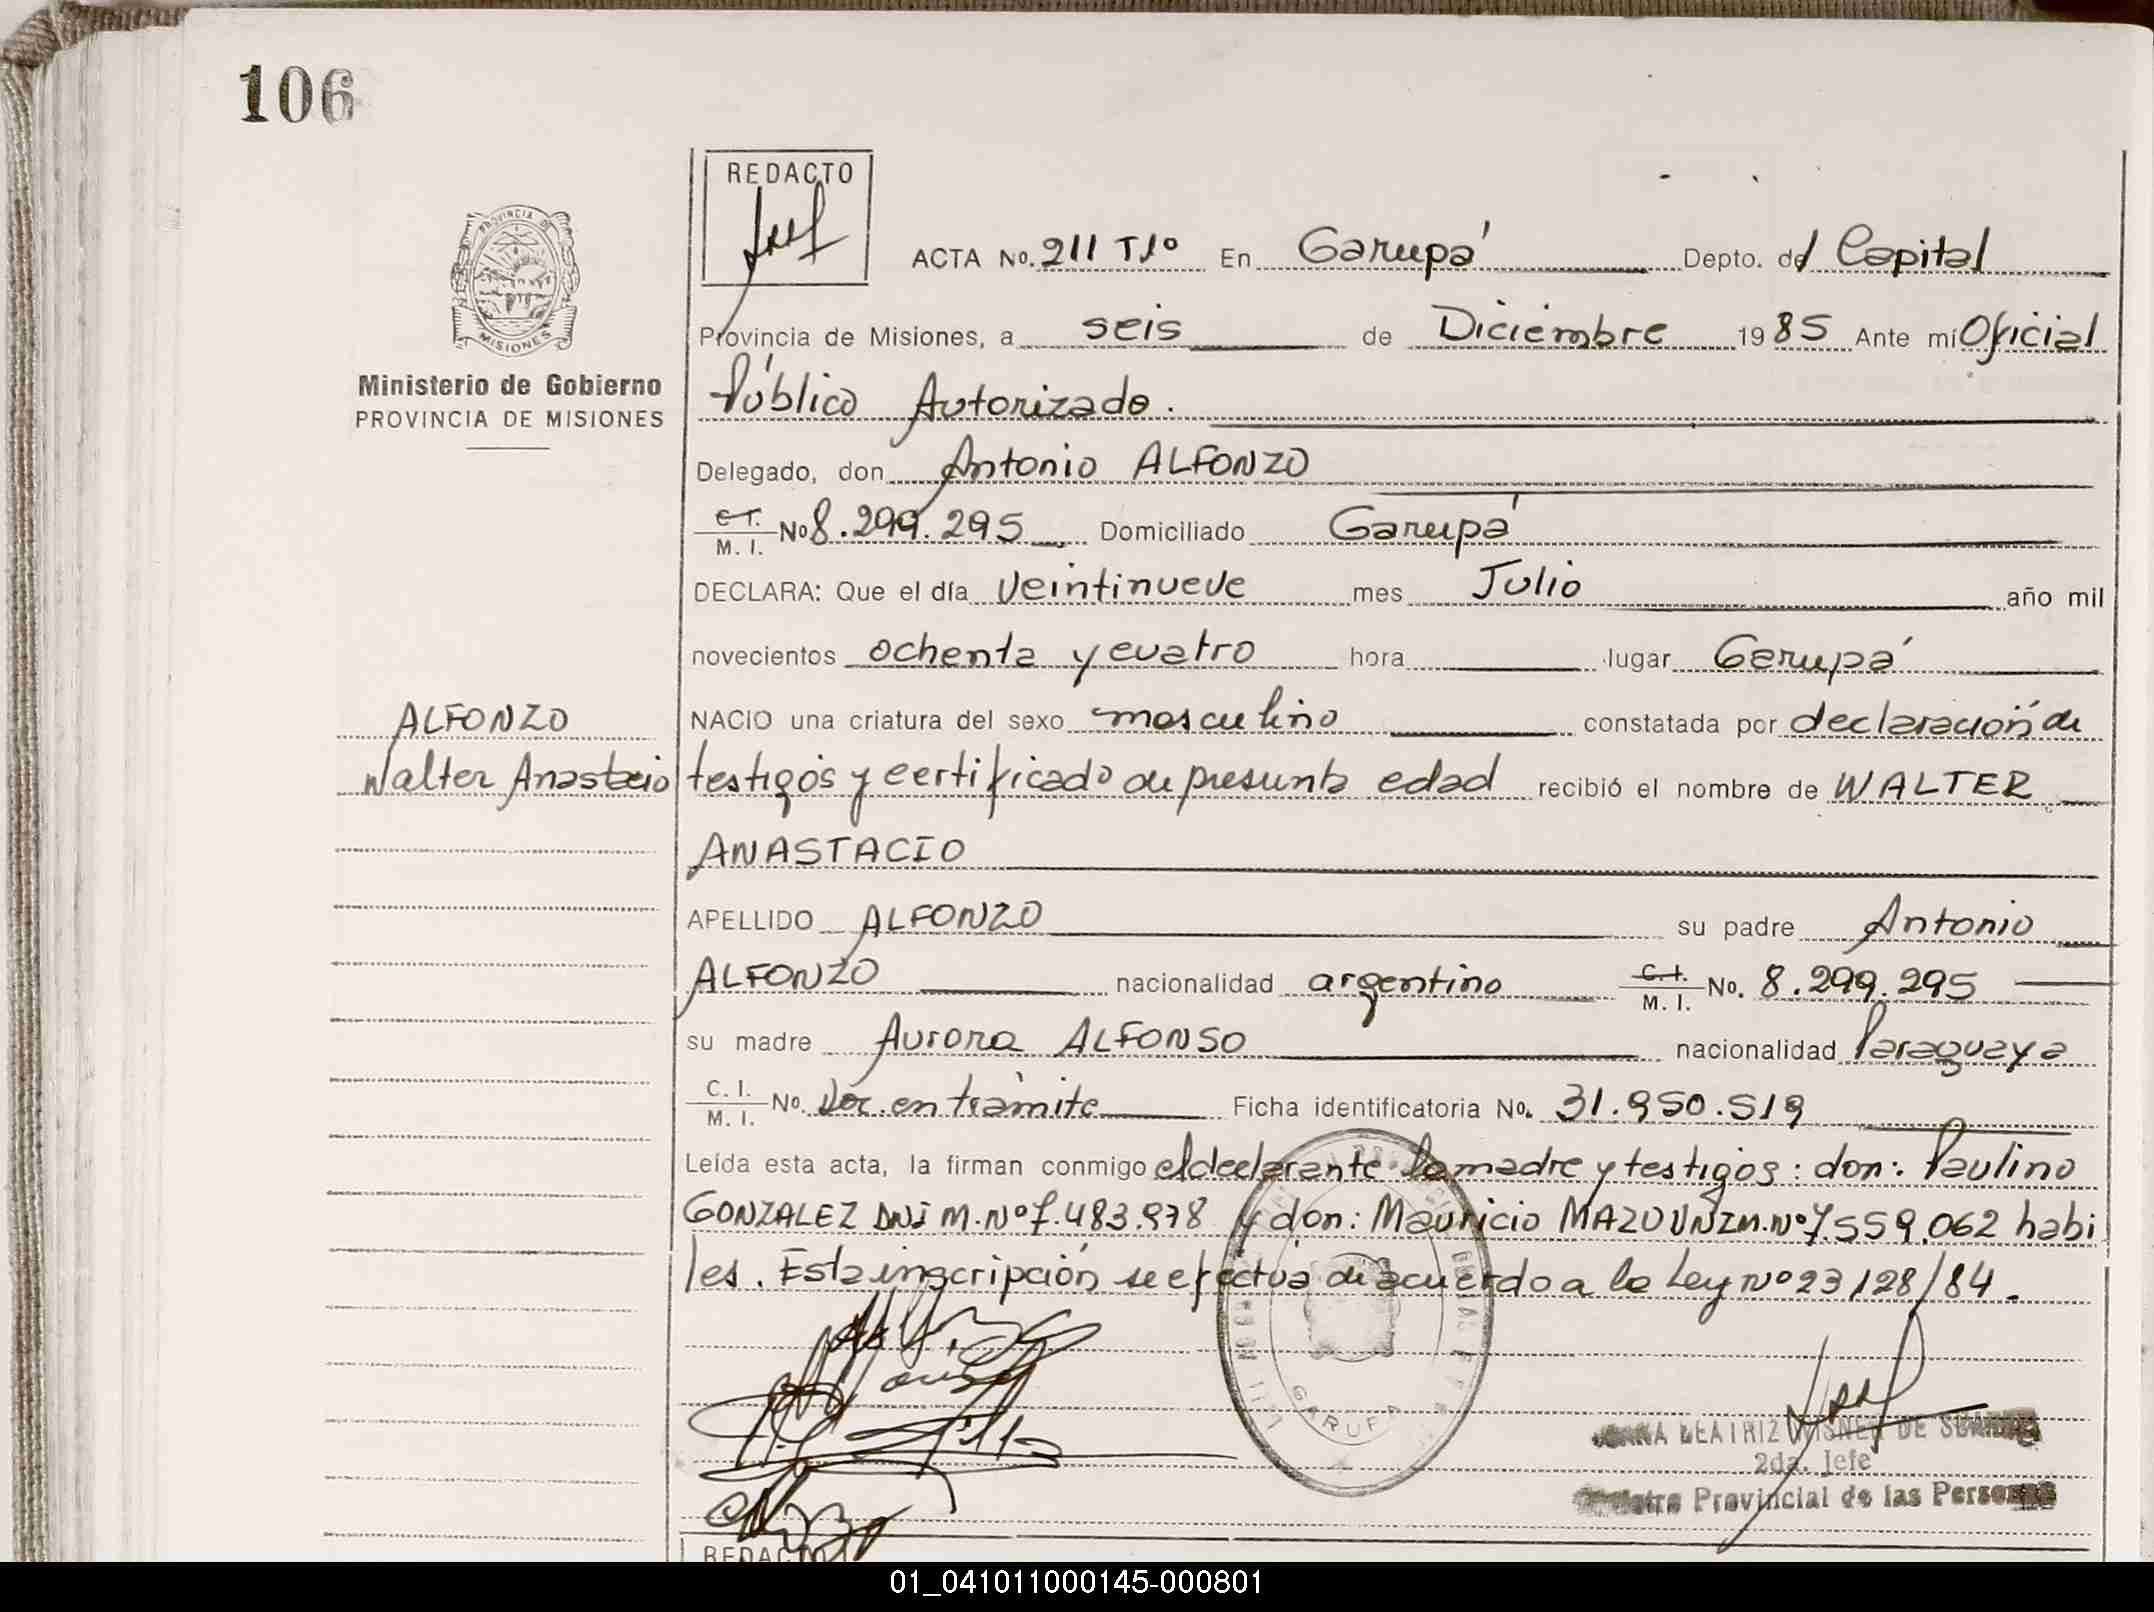 106
REDACTO
ACTA No. 211 T1º En Garupá Depto. del Capital
PROVINCIA DE
MISIONES
Provincia de Misiones, a seis de Diciembre 1985 Ante mí Oficial
Ministerio de Gobierno
PROVINCIA DE MISIONES
Público Autorizado.
Delegado, don Antonio ALFONZO
C.I. M. I. No 8.299.295 Domiciliado Garupá
DECLARA: Que el día veintinueve mes Julio año mil
novecientos ochenta y cuatro hora lugar Garupá
ALFONZO
Walter Anastacio
NACIO una criatura del sexo masculino constatada por declaración de
testigos y certificado de presunta edad recibió el nombre de WALTER
ANASTACIO
APELLIDO ALFONZO su padre Antonio
ALFONZO nacionalidad argentino C.I. M. I. No. 8.299.295
su madre Aurora ALFONSO nacionalidad Paraguaya
C. I. M. I. No. Doc. en trámite Ficha identificatoria No. 31.950.519
Leída esta acta, la firman conmigo el declarante la madre y testigos: don: Paulino
GONZALEZ DNI M.Nº 7.483.978 y don: Mauricio M.Nº 7.559.062 habi
les. Esta inscripción se efectúa de acuerdo a la Ley Nº 23128/84.
GARUPA
BEATRIZ DE
2da. Jefe
Provincial de las Personas
REDACTO
01_041011000145-000801